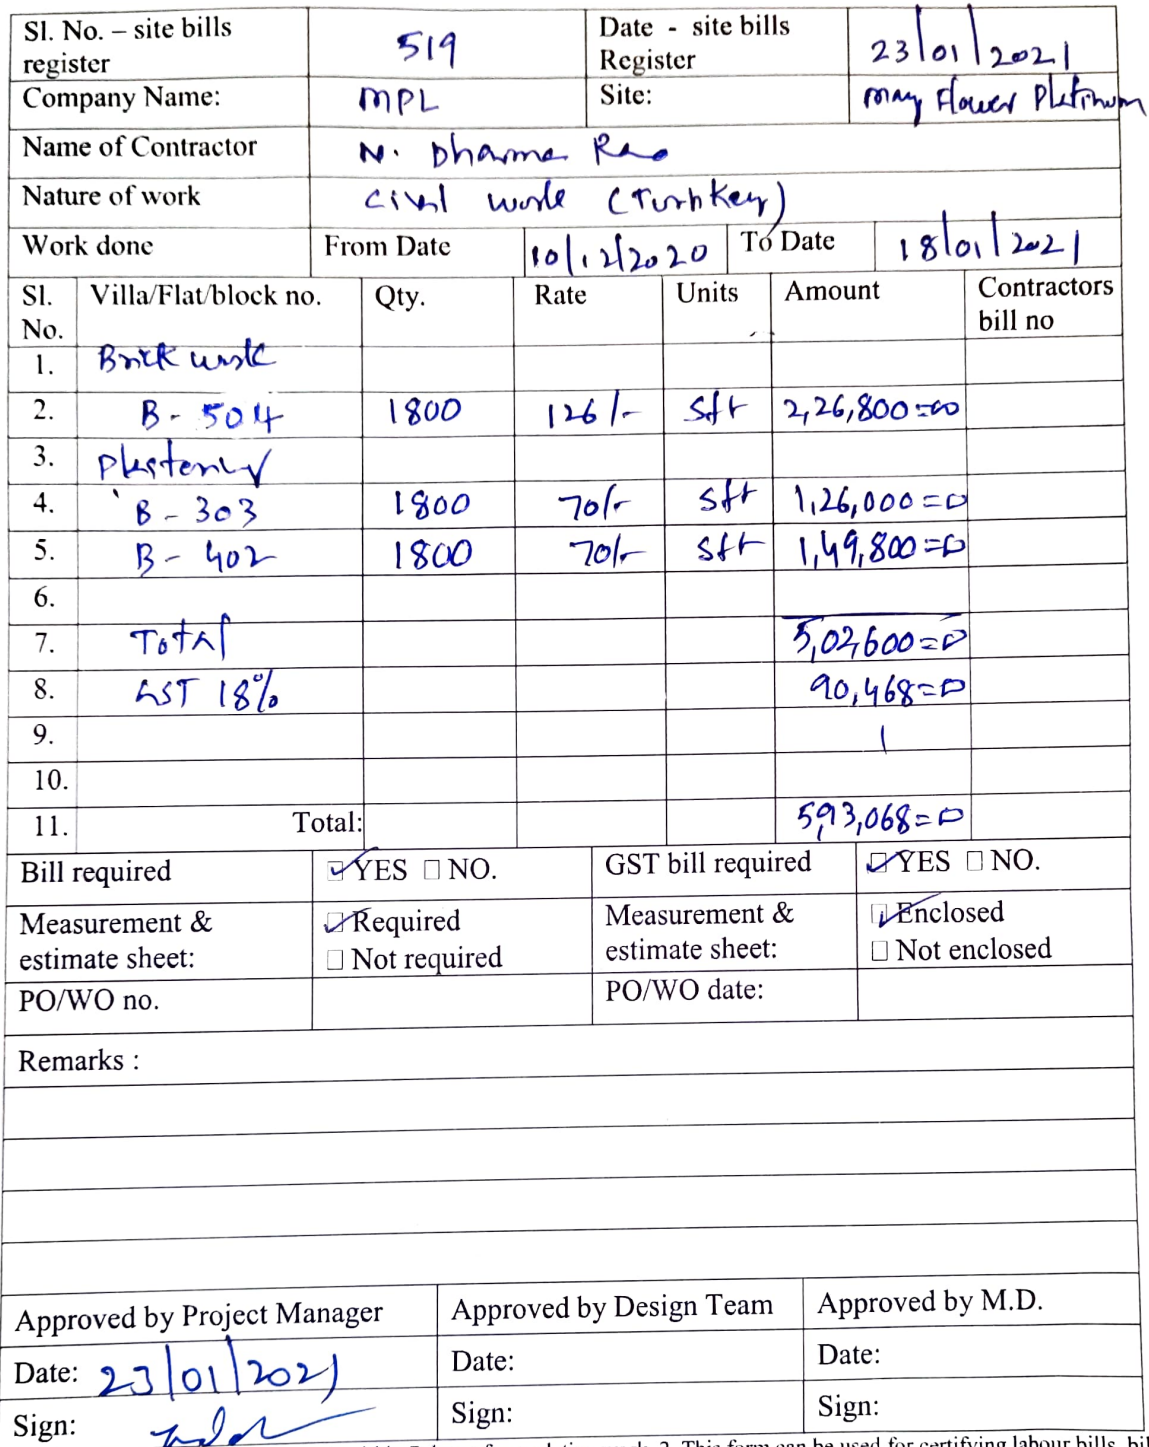 Sl. No. – site bills register 519 Date - site bills Register 23/01/2021
Company Name: MPL Site: May Flower Platinum
Name of Contractor N. Dharma Rao
Nature of work Civil work (Turnkey)
Work done From Date 10/12/2020 To Date 18/01/2021
Sl. No. Villa/Flat/block no. Qty. Rate Units Amount Contractors bill no
1. Brick work
2. B - 504 1800 126/- sft 2,26,800=00
3. Plastering
4. B - 303 1800 70/- sft 1,26,000=0
5. B - 402 1800 70/- sft 1,49,800=0
6.
7. Total 5,02,600=0
8. GST 18% 90,468=0
9.
10.
11. Total: 5,93,068=0
Bill required ☑ YES □ NO. GST bill required ☑ YES □ NO.
Measurement & estimate sheet: ☑ Required □ Not required Measurement & estimate sheet: ☑ Enclosed □ Not enclosed
PO/WO no. PO/WO date:
Remarks :
Approved by Project Manager Approved by Design Team Approved by M.D.
Date: 23/01/2021 Date: Date:
Sign: Sign: Sign:
2. This form can be used for certifying labour bills,